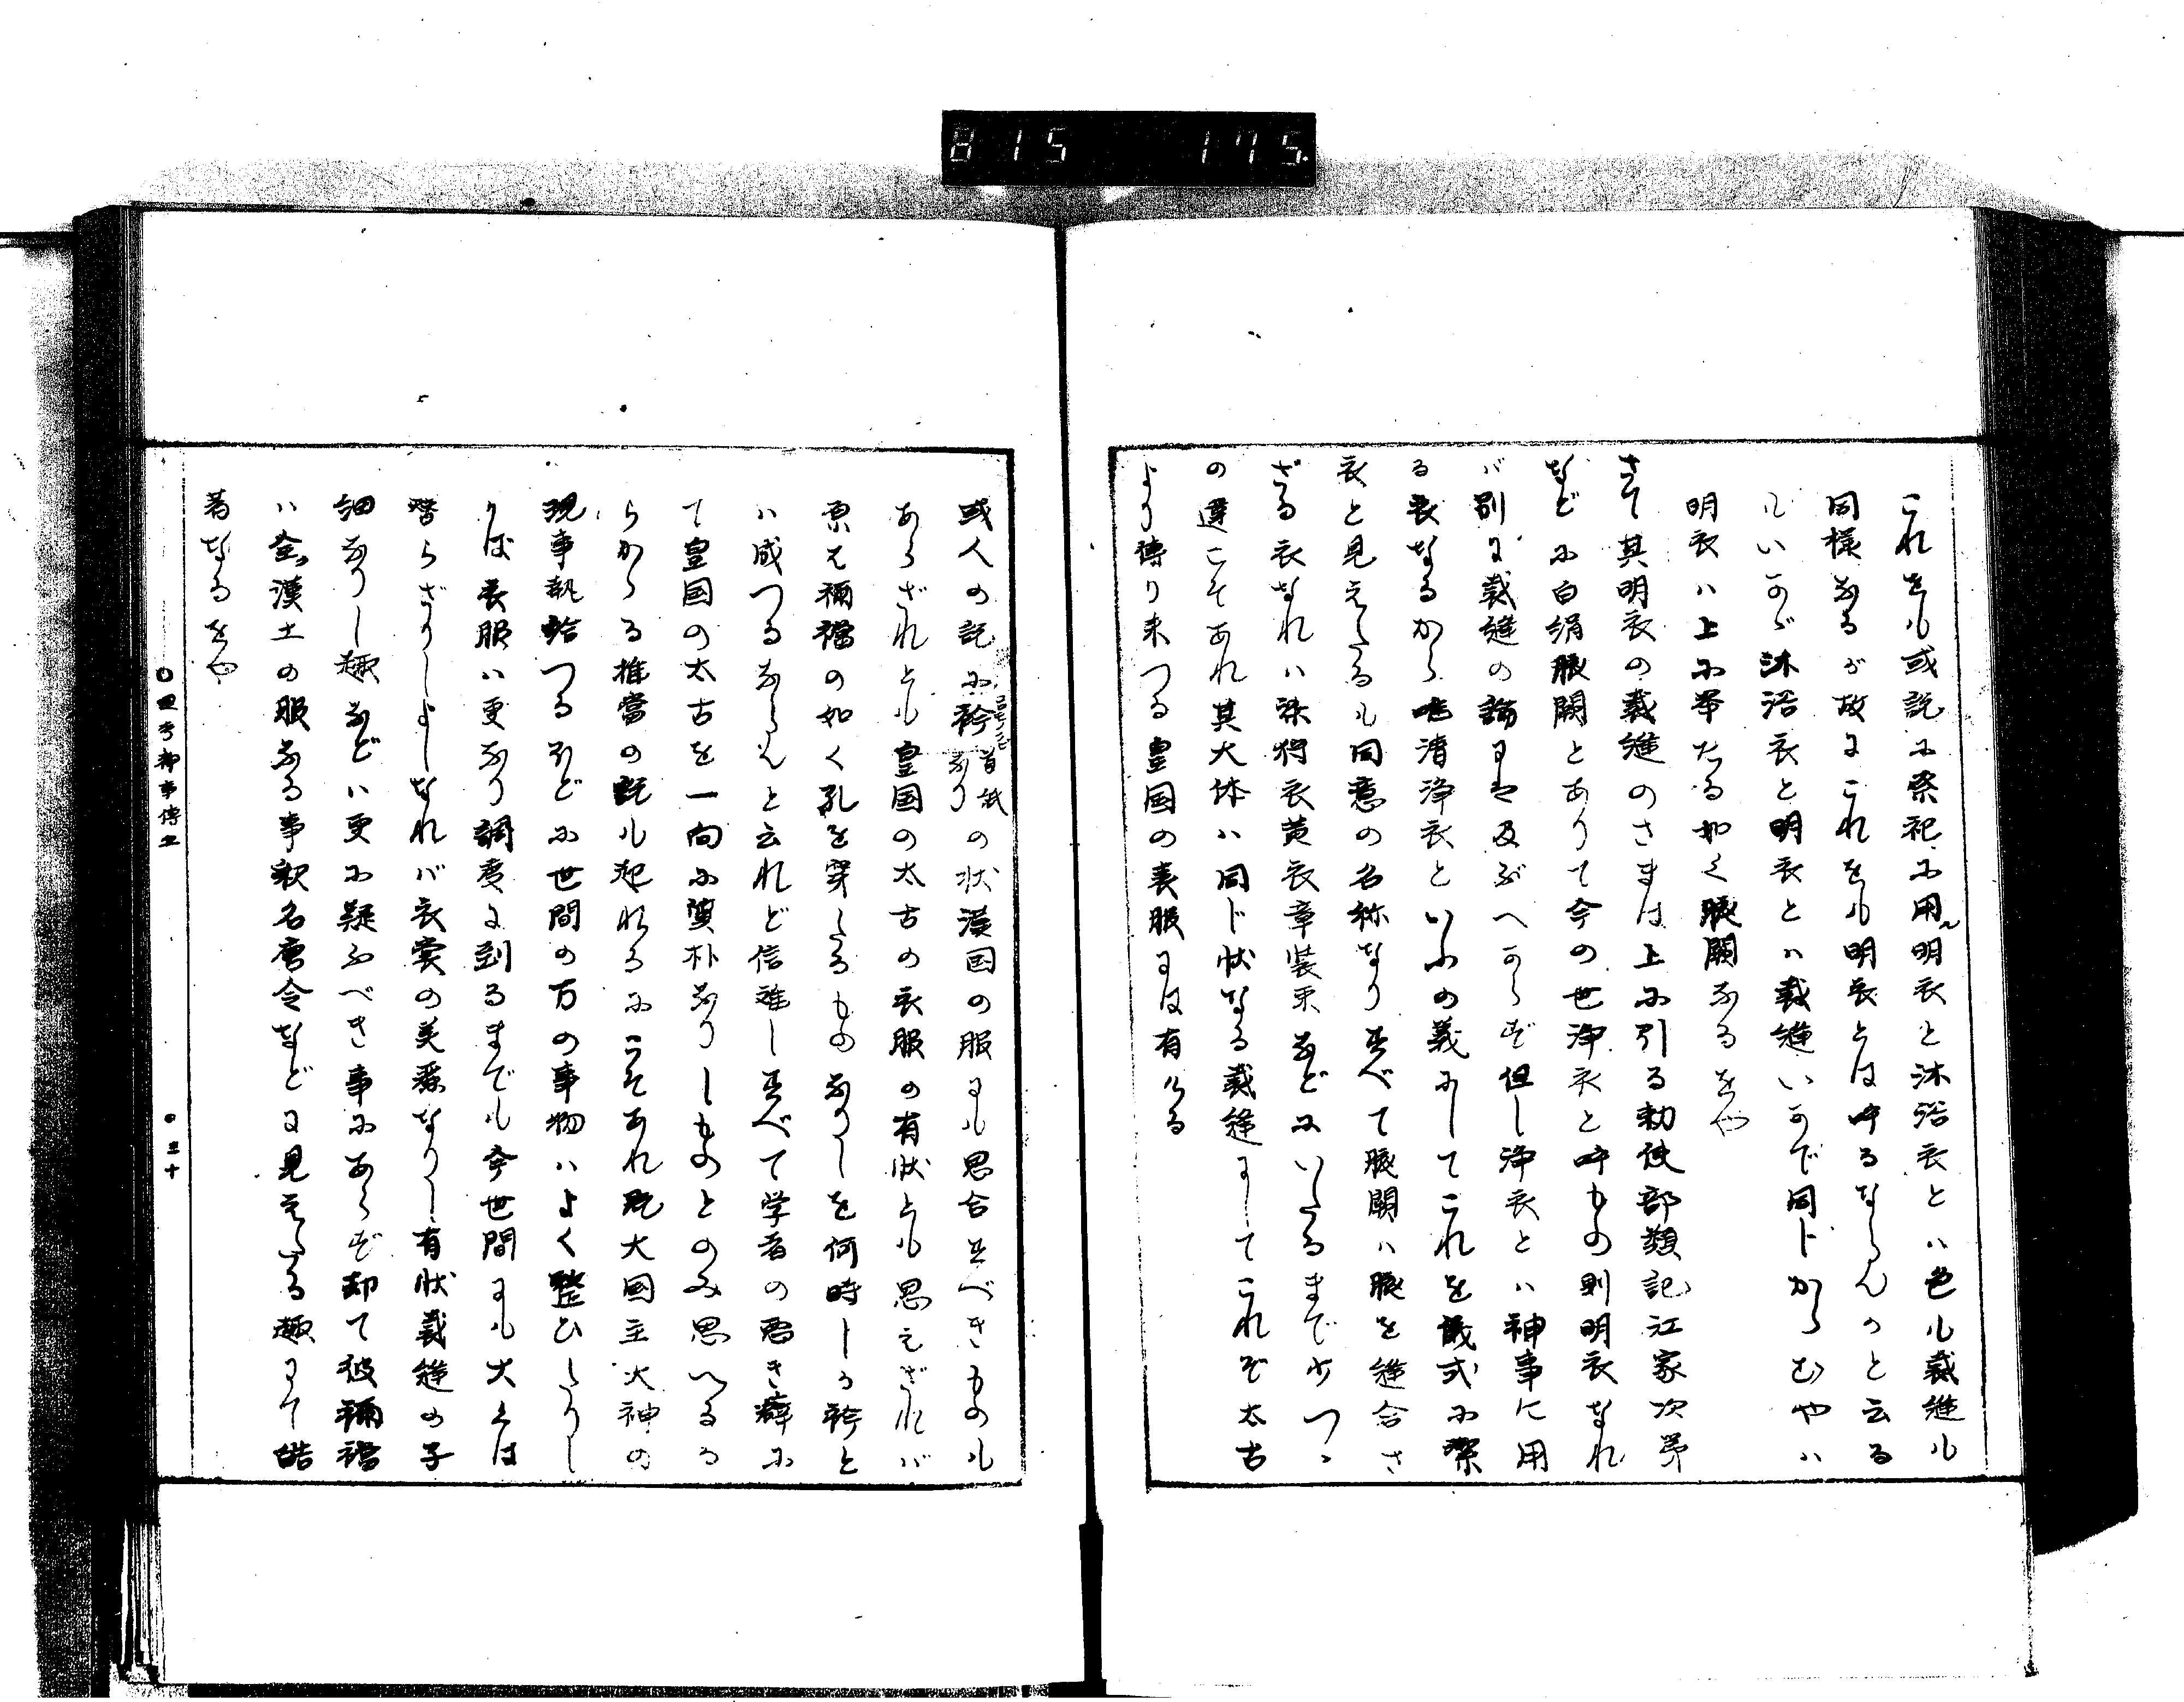 815 175.
これをも或説に祭祀に用る明衣と沐浴衣とハ色も裁縫も
同様なるが故にこれをも明衣とは呼るならんかと云る
もいかゞ沐浴衣と明衣とハ裁縫いかで同じからむやハ
明衣ハ上に挙たる如く腋闕なるをや
さて其明衣の裁縫のさまは上に引る勅使部類記江家次第
などに白絹腋闕とありて今の世浄衣と呼もの則明衣なれ
バ別に裁縫の論には及ぶべからず但し浄衣とハ神事に用
る衣なるから唯清浄衣といふの義にしてこれを儀式に潔
衣と見えたるも同意の名称なり並べて腋闕ハ腋を縫合さ
ざる衣なれハ洙狩衣黄衣章装束などにいたるまで少つゝ
の違こそあれ其大体ハ同じ状なる裁縫にしてこれぞ太古
より傳り来つる皇国の衣服には有ける
或人の説に衿首紙なりの状漢国の服にも思合すべきものも
あらざれとも皇国の太古の衣服の有状とも思えざれバ
原は裲襠の如く孔を穿たるものなりしを何時しか衿と
ハ成つるならんと云れど信難し並べて学者の君き癖に
て皇国の太古を一向に質朴なりしものとのみ思へるか
らかゝる推當の説も起れるにこそあれ既大国主大神の
現事執給つるほどに世間の万の事物ハよく整ひたりし
かば衣服ハ更なり調度に到るまでも今世間にも大凡は
替らざりしよしなれバ衣裳の美悪なりし有状裁縫の子
細なりし趣などハ更に疑ふべき事にあらず却て彼裲襠
ハ全漢土の服なる事釈名唐令などに見えたる趣にて皓
著なるをや